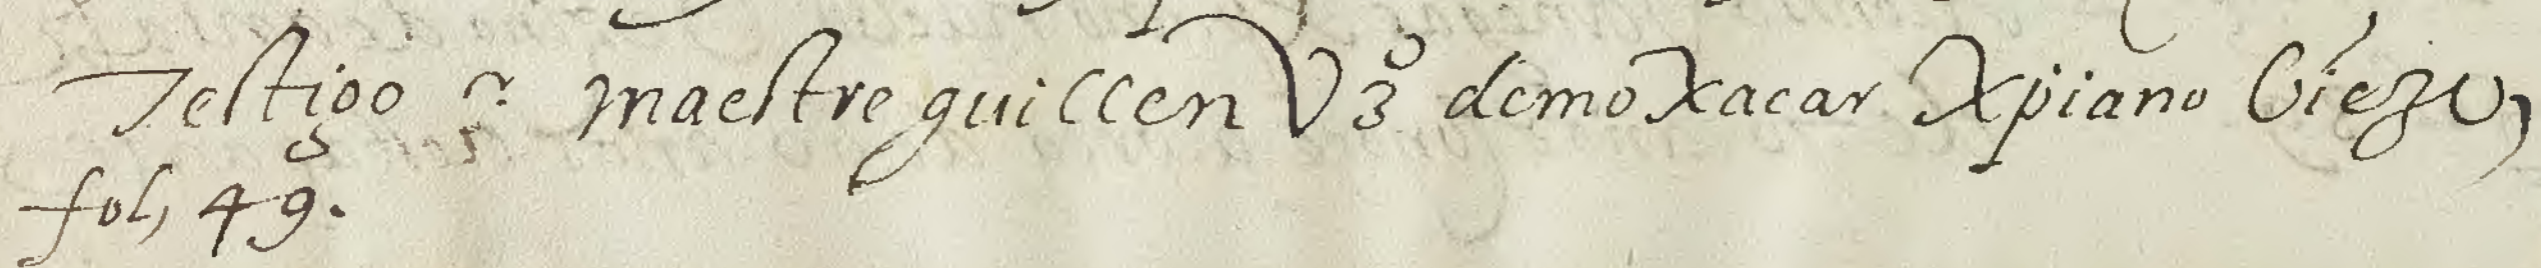 Testigo 2: maestre guillen Vzº de moxacar xpiano viezo,
fol, 49.